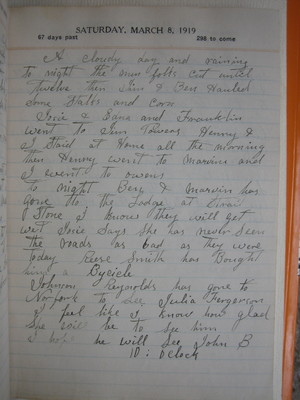 SATURDAY, MARCH 8, 1919
67 days past 298 to come
A cloudy day and raining
to night the men folks cut until
twelve then Jim & Ben Hauled
Some Stalks and Corn
Josie & Edna and Franklin
went to Jim Henry &
I Staid at Home all the morning
then Henry went to Marvins and
I went to owens
to night Ben & Marvin has
Gone to the Lodge at
Stone I knows they will get
wet Josie Says She has never seen
the roads as bad as they were
today Reese Smith has Bought
him a Bycicle
Johnson Reynolds has gone to
Norfork to See Julia Fergerson
I feel like I know how glad
She will be to see him
I hope he will See John B
10: oclock